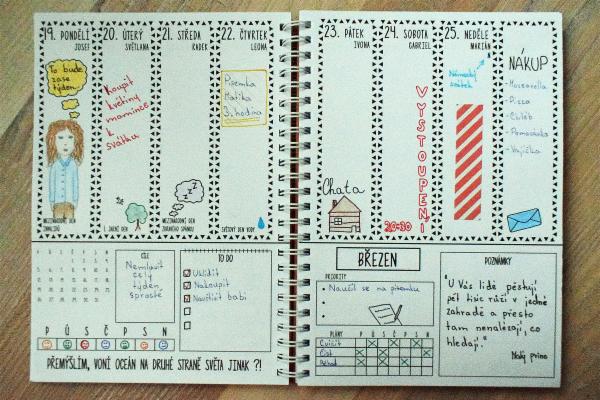 19. PONDĚLÍ
JOSEF
To bude
zase
týden...
MEZINÁRODNÍ DEN
INVALIDŮ
20. ÚTERÝ
SVĚTLANA
Koupit
květiny
mamince
k
svátku
1. JARNÍ DEN
21. STŘEDA
RADEK
Z Z Z
MEZINÁRODNÍ DEN
ZDRAVÉHO SPÁNKU
22. ČTVRTEK
LEONA
Písemka
Matika
3. hodina
SVĚTOVÝ DEN VODY
CÍLE
Nemluvit
celý
týden
sprostě
TO DO
Uklidit
Nakoupit
Navštívit babi
P Ú S Č P S N
PŘEMÝŠLÍM, VONÍ OCEÁN NA DRUHÉ STRANĚ SVĚTA JINAK ?!
23. PÁTEK
IVONA
Chata
24. SOBOTA
GABRIEL
VYSTOUPENÍ
20:30
25. NEDĚLE
MARIÁN
svátek
NÁKUP
- Mozzarella
- Pizza
- Chléb
- Pomazánka
- Vajíčka
BŘEZEN
PRIORITY
Naučit se na písemku
PLÁNY
P Ú S Č P S N
Cvičit
Číst
Běhat
POZNÁMKY
"U Vás lidé pěstují
pět tisíc růží v jedné
zahradě a přesto
tam nenalézají, co
hledají."
Malý princ